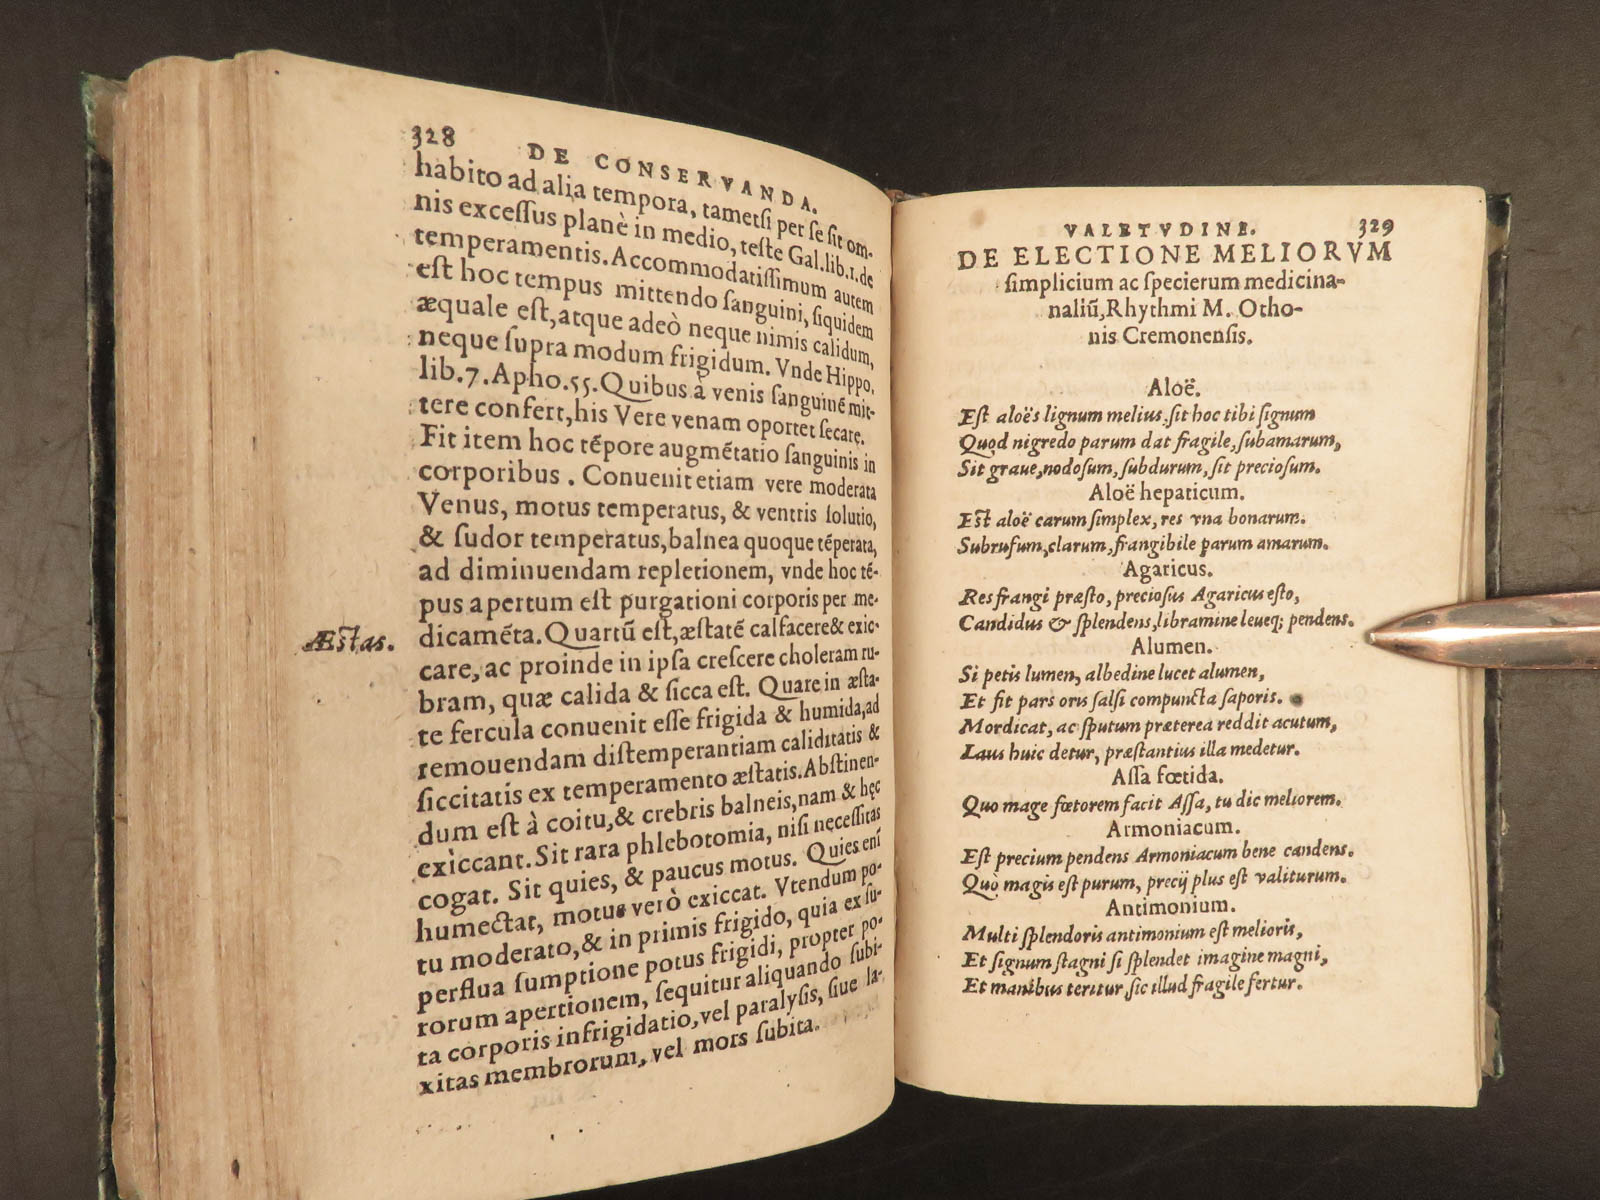 328
DE CONSERVANDA.
habito ad alia tempora, tametsi per se sit om-
nis excessus planè in medio, teste Gal.lib.1.de
temperamentis. Accommodatissimum autem
est hoc tempus mittendo sanguini, siquidem
æquale est, atque adeò neque nimis calidum,
neque supra modum frigidum. Vnde Hippo.
lib.7. Apho.55. Quibus à venis sanguinē mit-
tere confert, his Vere venam oportet secare.
Fit item hoc tēpore augmētatio sanguinis in
corporibus. Conuenit etiam vere moderata
Venus, motus temperatus, & ventris solutio,
& sudor temperatus, balnea quoque tēperata,
ad diminuendam repletionem, vnde hoc tē-
pus apertum est purgationi corporis per me-
dicamēta. Quartū est, æstatē calfacere & exic-
Æstas.
care, ac proinde in ipsa crescere choleram ru-
bram, quæ calida & sicca est. Quare in æsta-
te fercula conuenit esse frigida & humida, ad
remouendam distemperantiam caliditatis &
siccitatis ex temperamento æstatis. Abstinen-
dum est à coitu, & crebris balneis, nam & hęc
exiccant. Sit rara phlebotomia, nisi necessitas
cogat. Sit quies, & paucus motus. Quies enī
humectat, motus verò exiccat. Vtendum po-
tu moderato, & in primis frigido, quia ex su-
perflua sumptione potus frigidi, propter po-
rorum apertionem, sequitur aliquando subi-
ta corporis infrigidatio, vel paralysis, siue la-
xitas membrorum, vel mors subita.
VALETVDINE.
329
DE ELECTIONE MELIORVM
simplicium ac specierum medicina-
naliū, Rhythmi M. Otho-
nis Cremonensis.
Aloë.
Est aloës lignum melius, sit hoc tibi signum
Quod nigredo parum dat fragile, subamarum,
Sit graue, nodosum, subdurum, sit preciosum.
Aloë hepaticum.
Est aloë carum simplex, res vna bonarum.
Subrufum, clarum, frangibile parum amarum.
Agaricus.
Res frangi præsto, preciosus Agaricus esto,
Candidus & splendens, libramine leueq; pendens.
Alumen.
Si petis lumen, albedine lucet alumen,
Et fit pars oris salsi compuncta saporis.
Mordicat, ac sputum præterea reddit acutum,
Laus huic detur, præstantius illa medetur.
Assa fœtida.
Quo mage fœtorem facit Assa, tu dic meliorem.
Armoniacum.
Est precium pendens Armoniacum bene candens.
Quò magis est purum, precij plus est valiturum.
Antimonium.
Multi splendoris antimonium est melioris,
Et signum stagni si splendet imagine magni,
Et manibus teritur, sic illud fragile fertur.